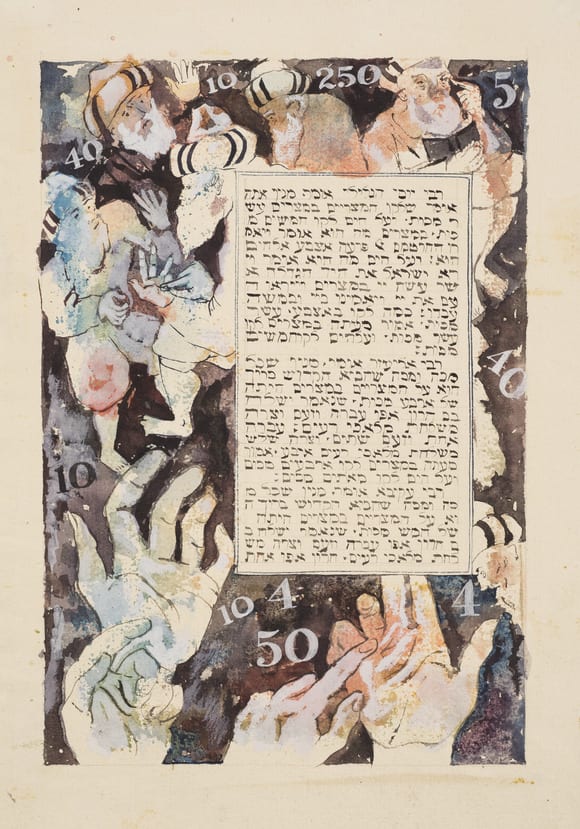 10 250 5
40
רבי יוסי הגלילי אומר מנין אתה
אומר שלקו המצריים במצרים עש
ר מכות. ועל הים לקו חמישים מ
כות. במצרים מה הוא אומר ויאמ
רו החרטמם א פרעה אצבע אלהים
הוא. ועל הים מה הוא אומר וי
רא ישראל את היד הגדלה א
שר עשה יי במצרים וייראו ה
עם את יי ויאמינו ביי ובמשה
עבדו. כמה לקו באצבע. עשר
מכות. אמור מעתה במצרים לקו
עשר מכות. ועל הים לקו חמישים
מכות.
רבי אליעזר אומר. מנין שכל
מכה ומכה שהביא הקדוש ברוך
הוא על המצריים במצרים היתה
של ארבע מכות. שנאמר ישלח
בם חרון אפו עברה וזעם וצרה
משלחת מלאכי רעים. עברה
אחת. וזעם שתים. וצרה שלש
משלחת מלאכי רעים ארבע. אמור
מעתה במצרים לקו ארבעים מכות
ועל הים לקו מאתים מכות.
רבי עקיבא אומר. מנין שכל מ
כה ומכה שהביא הקדוש ברוך ה
וא. על המצריים במצרים היתה
של חמש מכות. שנאמר ישלח ב
ם חרון אפו עברה וזעם וצרה מש
לחת מלאכי רעים. חרון אפו אחת
40
10
10 4 4
50